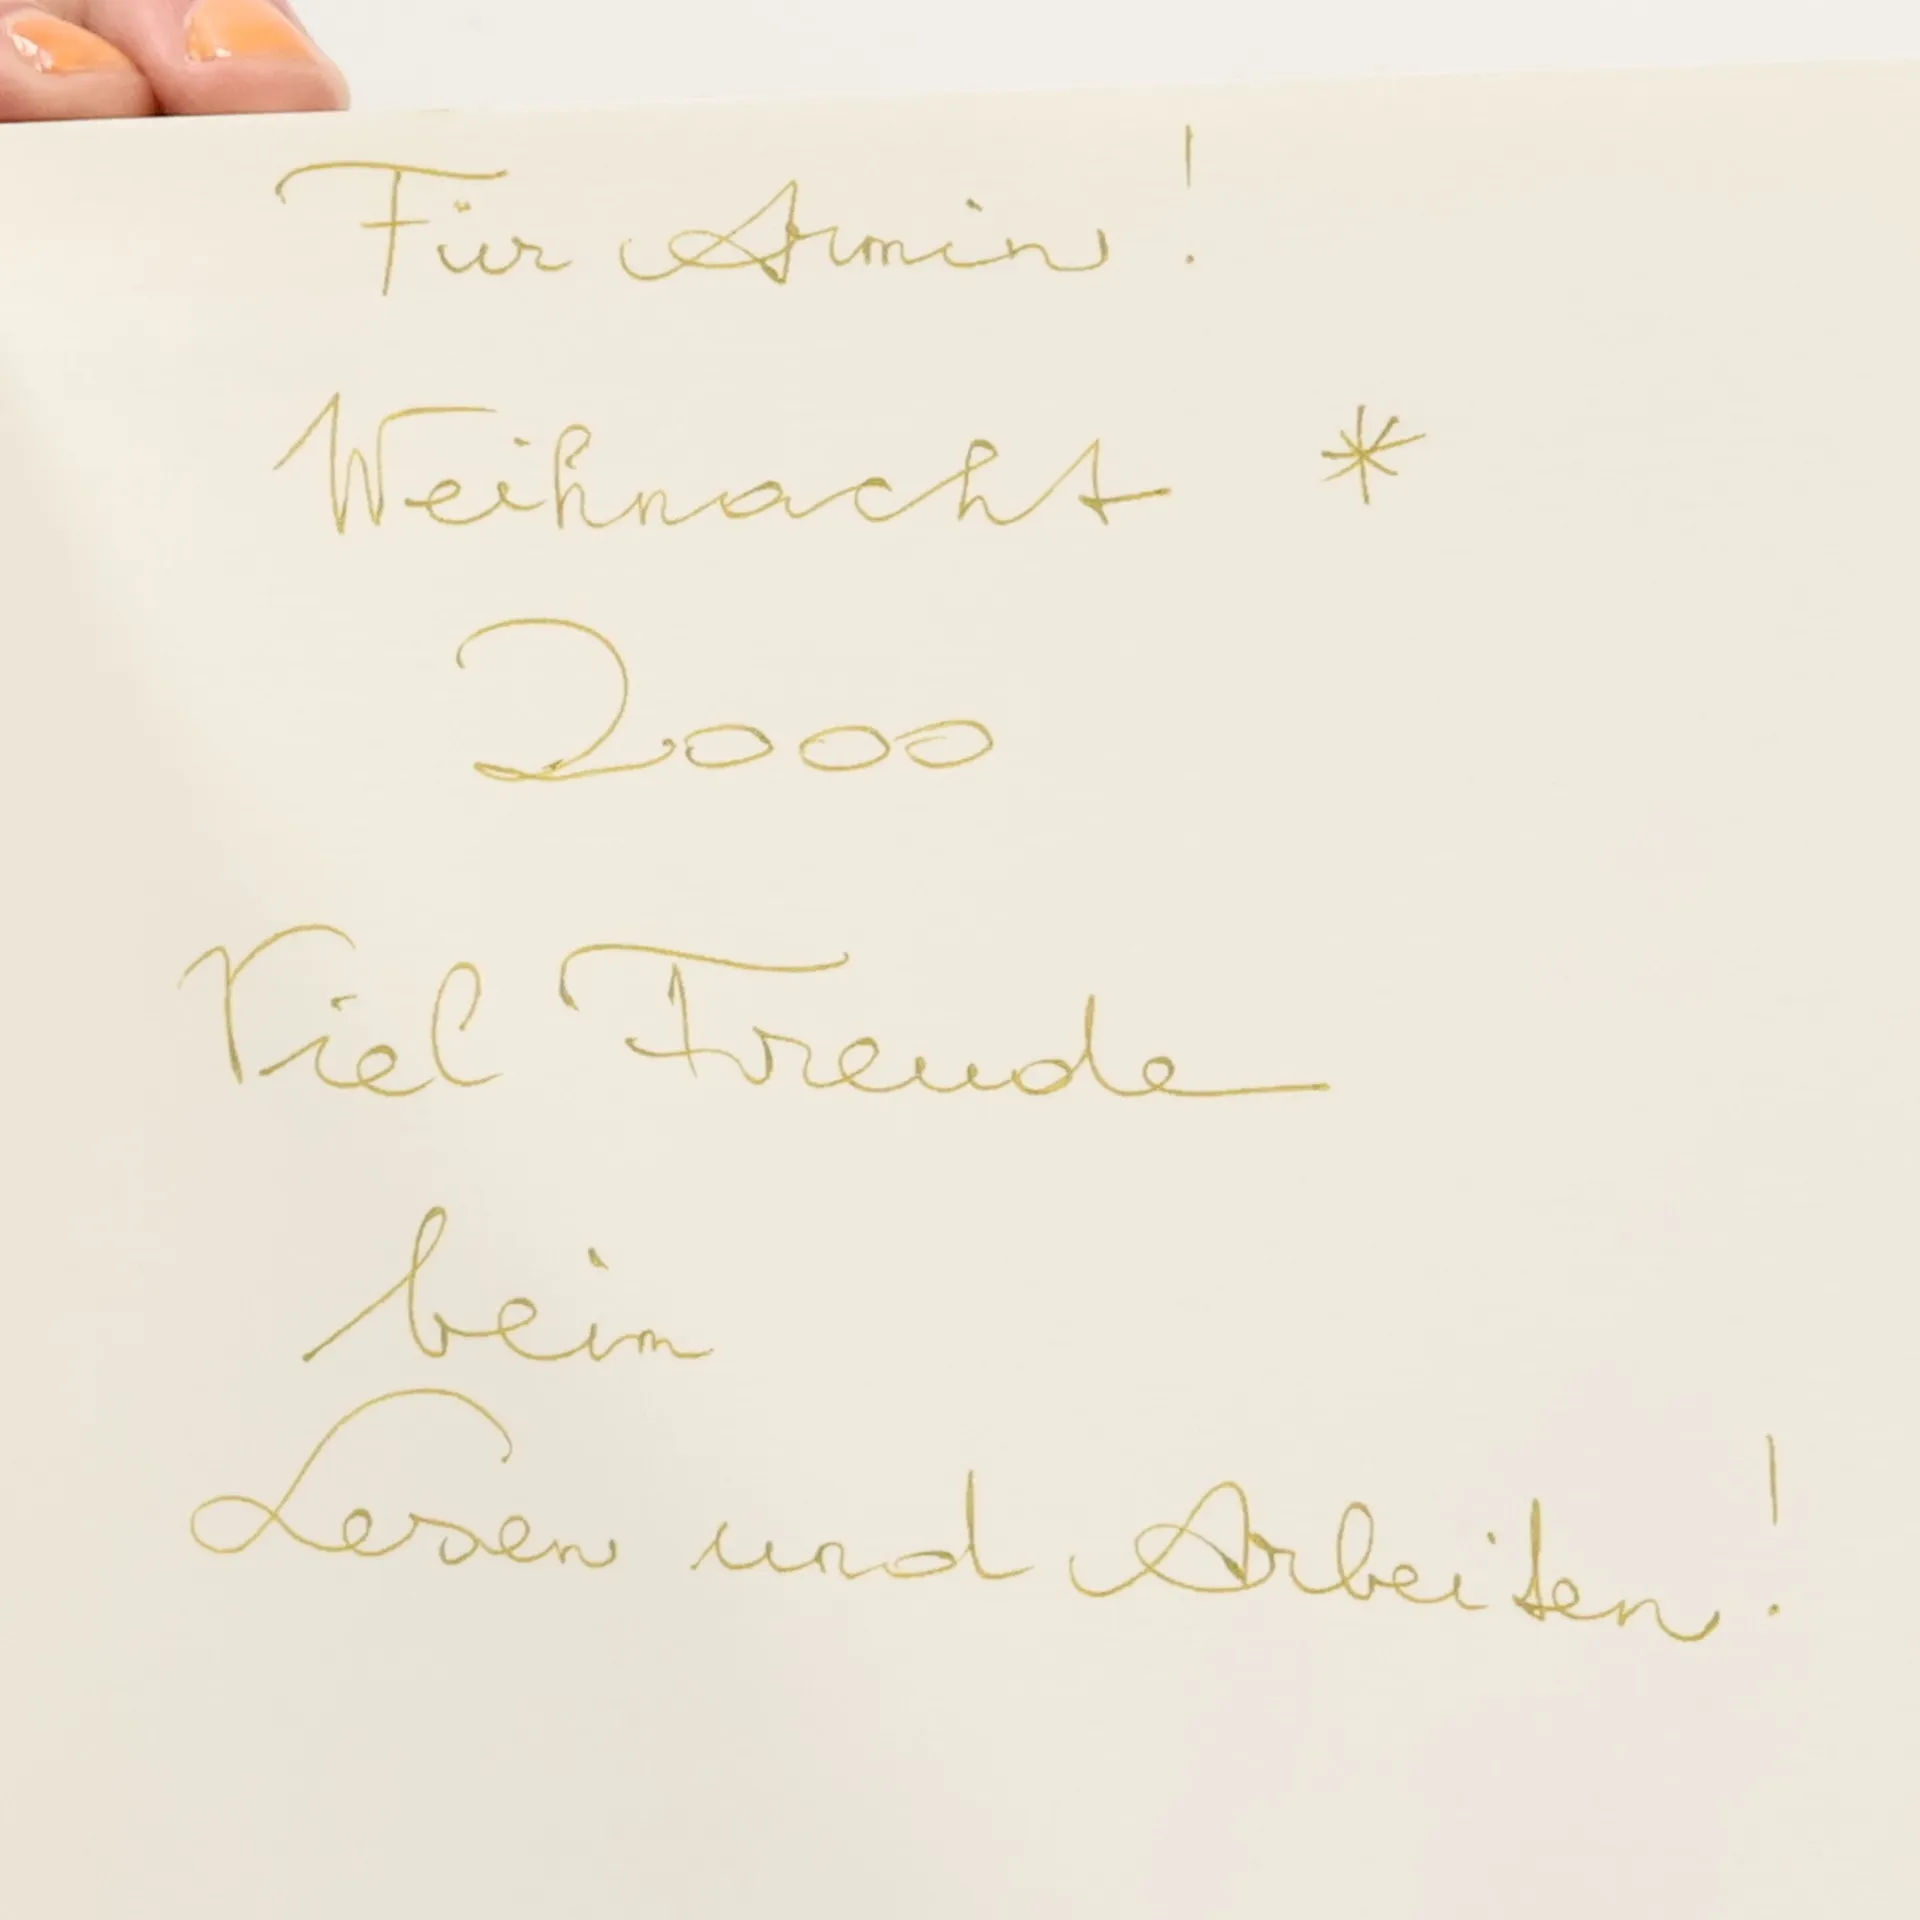 Für Armin!
Weihnacht *
2000
Viel Freude
beim
Lesen und Arbeiten!